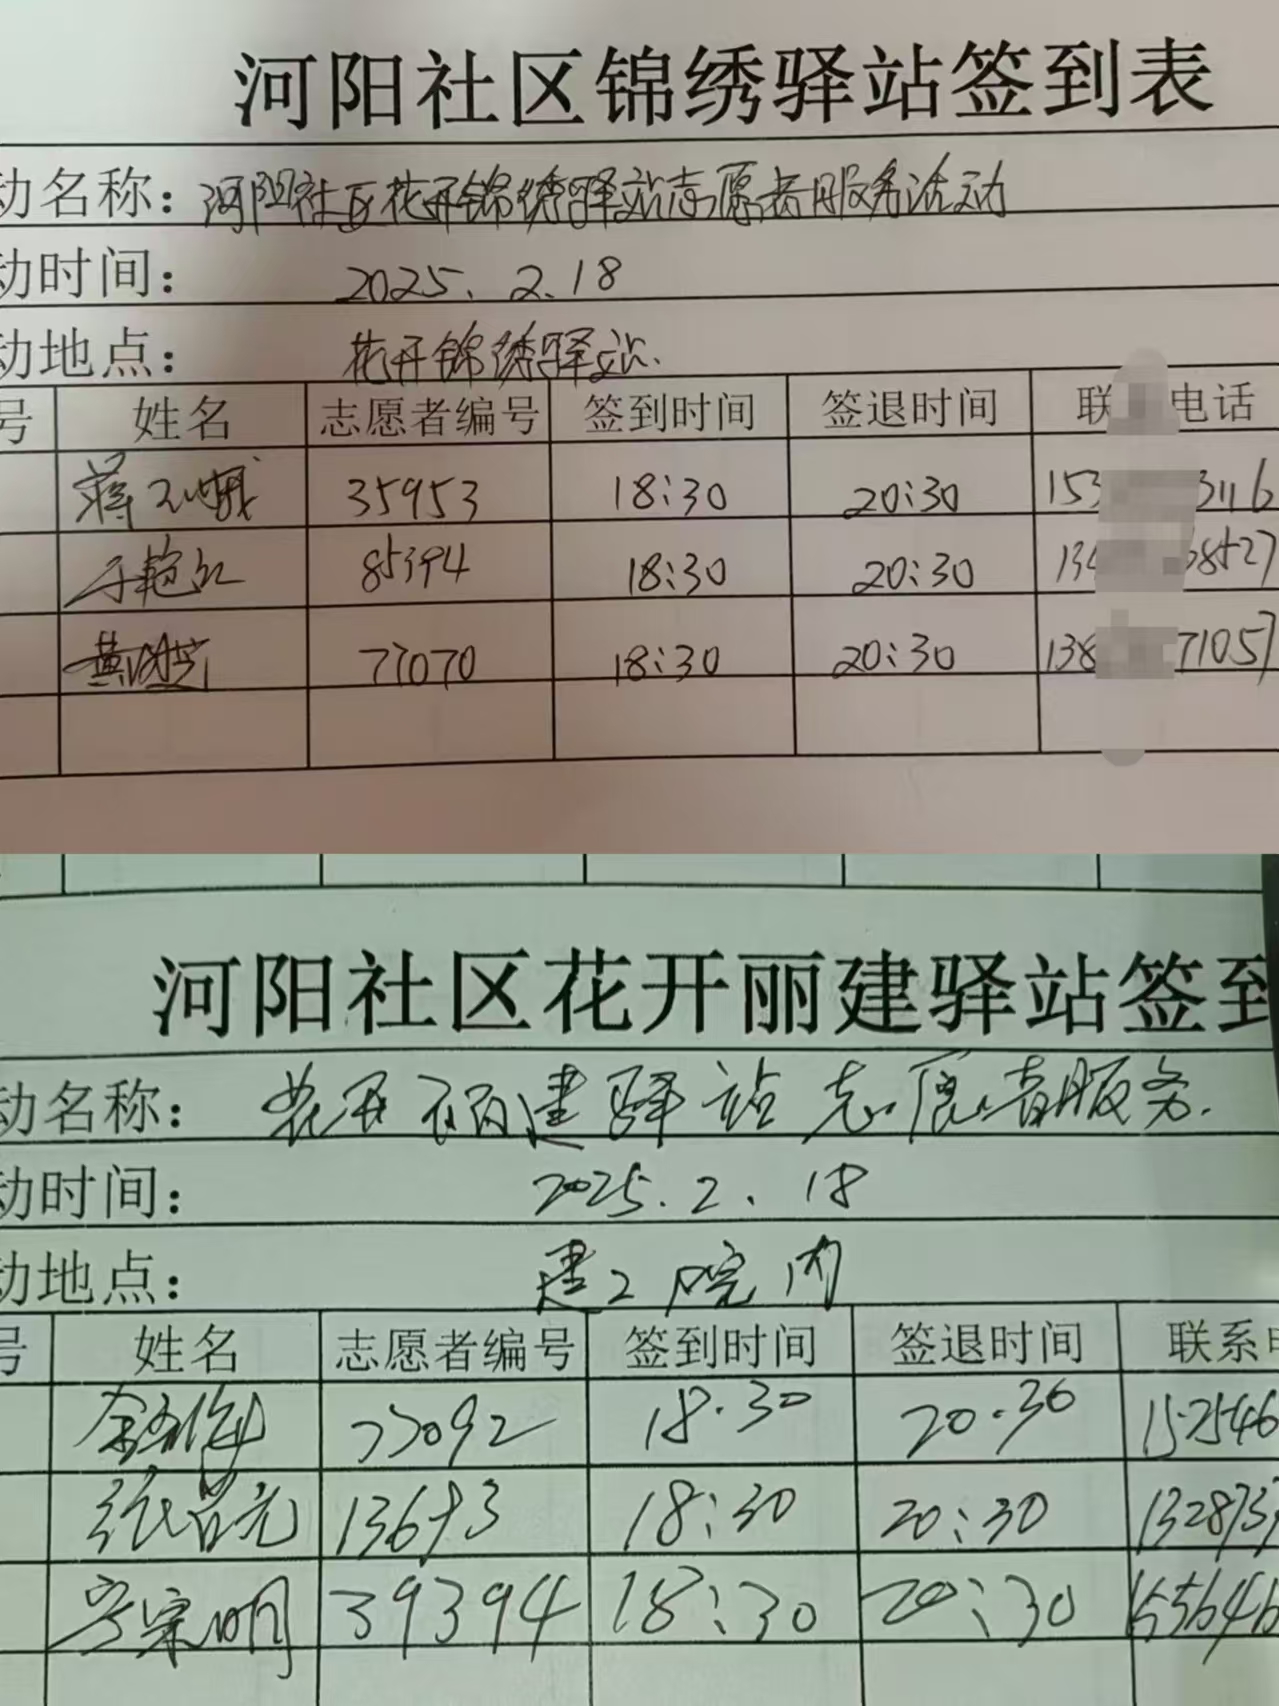 河阳社区锦绣驿站签到表
动名称：河阳社区花开锦绣驿站志愿者服务活动
动时间： 2025.2.18
动地点： 花开锦绣驿站.
号 姓名 志愿者编号 签到时间 签退时间 联 电话
蒋 35953 18:30 20:30 153 3116
于艳红 85394 18:30 20:30 134 8527
黄 77070 18:30 20:30 138 71057
河阳社区花开丽建驿站签到
动名称： 花开丽建驿站志愿者服务.
动时间： 2025.2.18
动地点： 建工院内
号 姓名 志愿者编号 签到时间 签退时间 联系电
77092 18:30 20:30 152546
张吕元 13693 18:30 20:30 132873
宗明 39394 18:30 20:30 155646